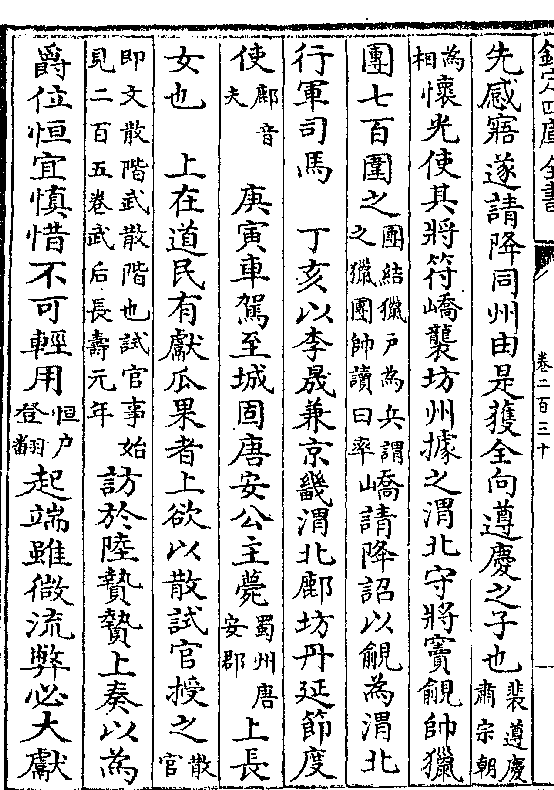 欽定四庫全書
卷二百三十
先感寤遂請降同州由是獲全向遵慶之子也裴遵慶肅宗朝
為相懷光使其將符嶠襲坊州據之渭北守將竇覦帥獵
團七百圍之團結獵户為兵謂之獵團帥讀曰率嶠請降詔以覦為渭北
行軍司馬　丁亥以李晟兼京畿渭北鄜坊丹延節度
使鄜音夫　庚寅車駕至城固唐安公主薨蜀州唐安郡上長
女也　上在道民有獻瓜果者上欲以散試官授之散官
即文散階武散階也試官事始見二百五卷武后長壽元年訪於陸贄贄上奏以為
爵位恒宜慎惜不可輕用恒户登翻起端雖微流弊必大獻